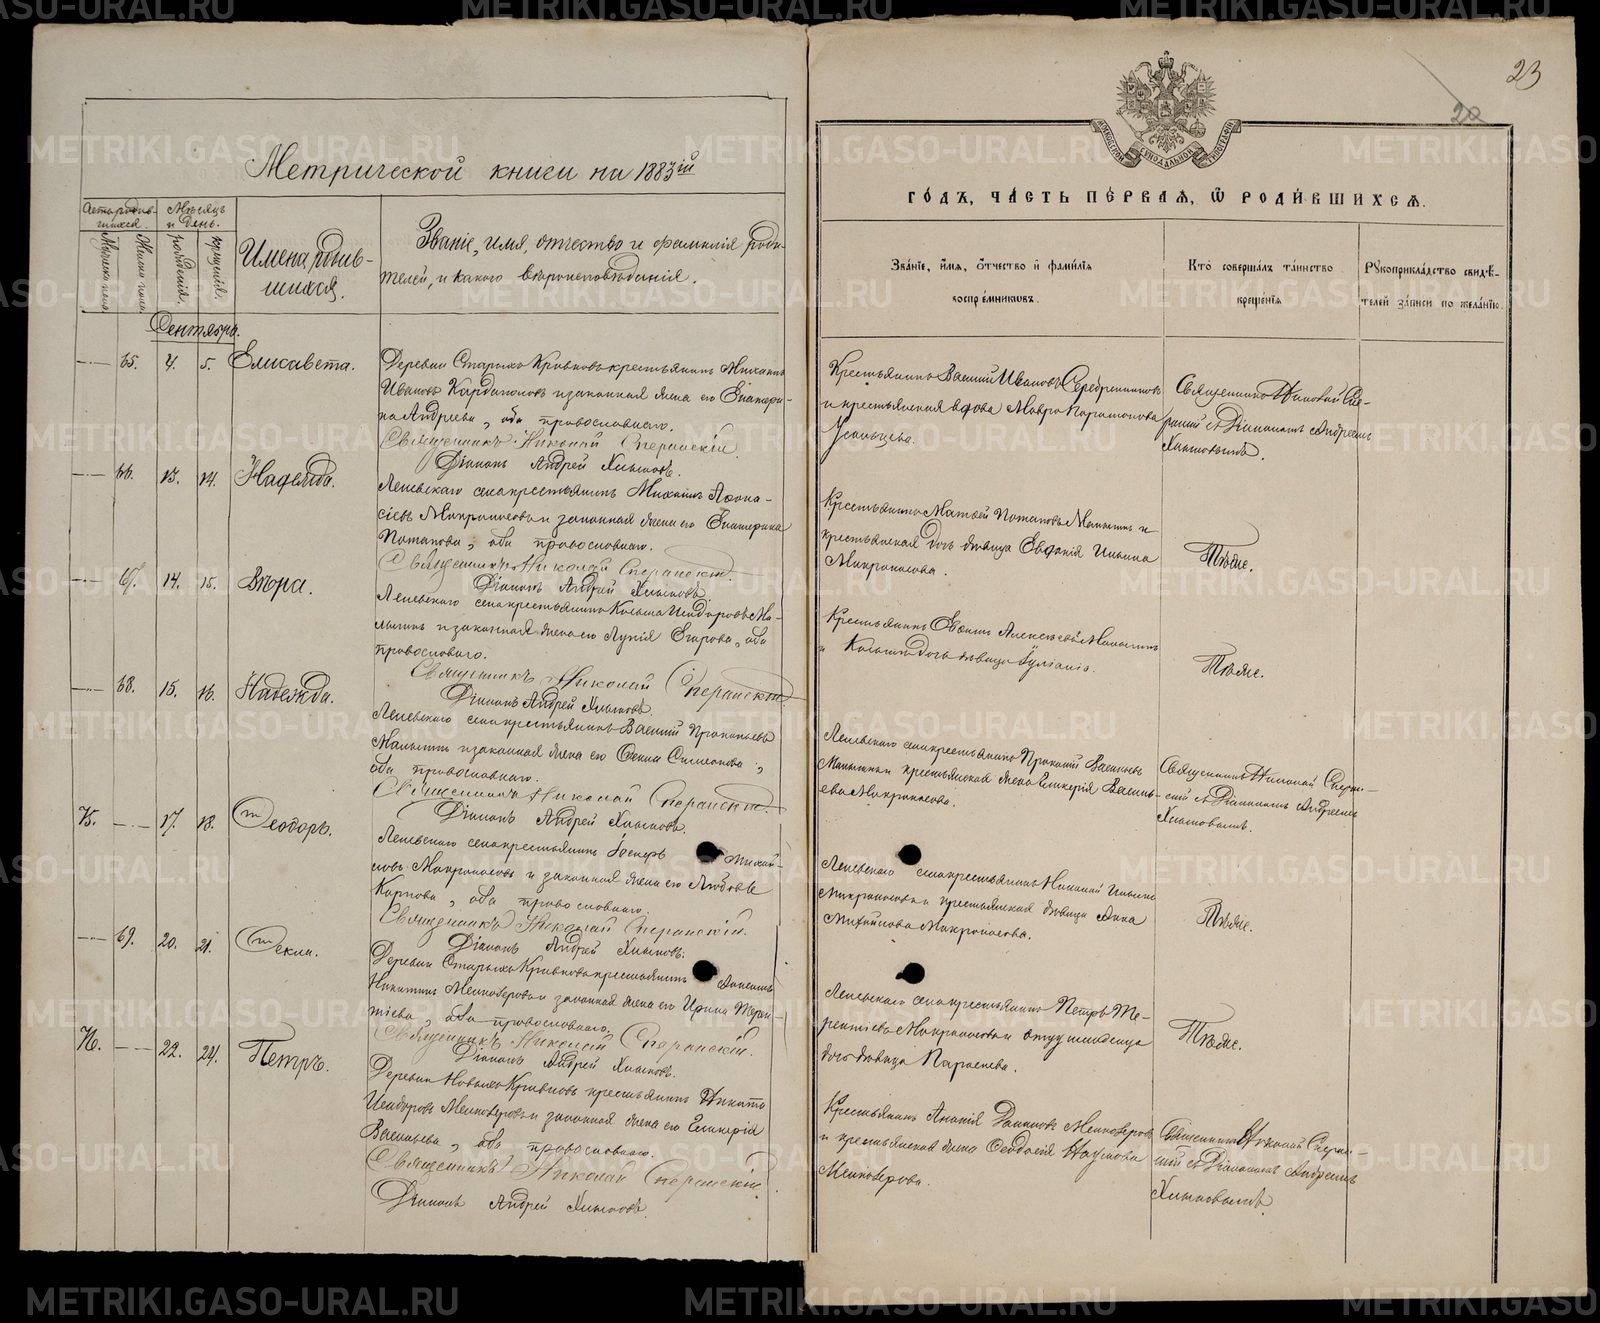 23
20
МОСКОВСКОЙ СѴНОДАЛЬНОЙ ТИПОГРАФІИ
Метрической книги на 1883ій
ГО́ДЪ, ЧА́СТЬ ПЕ́РВАЯ, Ѿ РОДИ́ВШИХСЯ.
Мѣсяцъ
и день.
рожденія.
крещенія.
Имена родив-
шихся.
Званіе, имя, отчество и фамилія роди-
телей, и какого вѣроисповѣданія.
Зва́ніе, и́мя, о́тчество и фами́лія
воспріе́мниковъ.
Кто̀ соверша́лъ та́инство
креще́нія
Рꙋкоприкла́дство свидѣ́-
телей за́писи по жела́нію.
Сентября.
65. 4. 5. Елисавета.
Деревни Старыхъ Кривковъ крестьянинъ Михаилъ
Ивановъ и законная жена его Екатери-
на Андреева, оба православнаго.
Священникъ Николай Сперанскій.
Діаконъ Андрей Хлыновъ.
Крестьянинъ Василий Ивановъ Серебренниковъ
и крестьянская вдова Мавра Парамонова
Усольцева.
Священникъ Николай Спе-
ранскій съ Діакономъ Андреемъ
Хлыновымъ.
66. 13. 14. Надежда.
Леневскаго села крестьянинъ Михаилъ Афона-
сіевъ Макроносовъ и законная жена его Екатерина
Потапова, оба православнаго.
Священникъ Николай Сперанскій.
Діаконъ Андрей Хлыновъ.
Крестьянинъ Матвей Потаповъ Малыгинъ и
крестьянская дочь дѣвица Евфанія Ильина
Макроносова.
Тѣже.
67. 14. 15. Вѣра.
Леневскаго села крестьянинъ Косьма Исидоровъ Ма-
лыгинъ и законная жена его Лукія Егорова, оба
православнаго.
Священникъ Николай Сперанскій
Діаконъ Андрей Хлыновъ.
Крестьянинъ Евфимъ Алексѣевъ Малыгинъ
и Косьмы дочь дѣвица Іуліанія.
Тѣже.
68. 15. 16. Надежда.
Леневскаго села крестьянинъ Василий Прокопьевъ
Малыгинъ и законная жена его Симеонова,
оба православнаго.
Священникъ Николай Сперанскій
Діаконъ Андрей Хлыновъ.
Леневскаго села крестьянинъ Прокопій Васильевъ
Малыгинъ и крестьянская жена Гликерія Василь-
ева Макроносова.
Священникъ Николай Сперан-
скій съ Діакономъ Андреемъ
Хлыновымъ.
75. 17. 18. Ѳеодоръ.
Леневскаго села крестьянинъ Михай-
ловъ Макроносовъ и законная жена его Любовь
Карпова, оба православнаго.
Священникъ Николай Сперанскій.
Діаконъ Андрей Хлыновъ.
Леневскаго села крестьянинъ Николай Ильинъ
Макроносовъ и крестьянская дѣвица Анна
Михайлова Макроносова.
Тѣже.
69. 20. 21. Ѳекла.
Деревни Старыхъ Кривковъ крестьянинъ
Никитинъ Мелкозеровъ и законная жена его Ирина Терен-
тіева, оба православнаго.
Священникъ Николай Сперанскій.
Діаконъ Андрей Хлыновъ.
Леневскаго села крестьянинъ Петръ Те-
рентіевъ Макроносовъ и
дочь дѣвица Параскева.
Тѣже.
76. 22. 24. Петръ.
Деревни Новыхъ Кривковъ крестьянинъ Никита
Исидоровъ Мелкозеровъ и законная жена его Гликерія
Васильева, оба православнаго.
Священникъ Николай Сперанскій.
Діаконъ Андрей Хлыновъ.
Крестьянинъ Ананія Мелкозеровъ
и крестьянская жена Ѳеодосія Наумова
Мелкозерова.
Священникъ Николай Сперан-
скій съ Діакономъ Андреемъ
Хлыновымъ.
METRIKI.GASO-URAL.RU